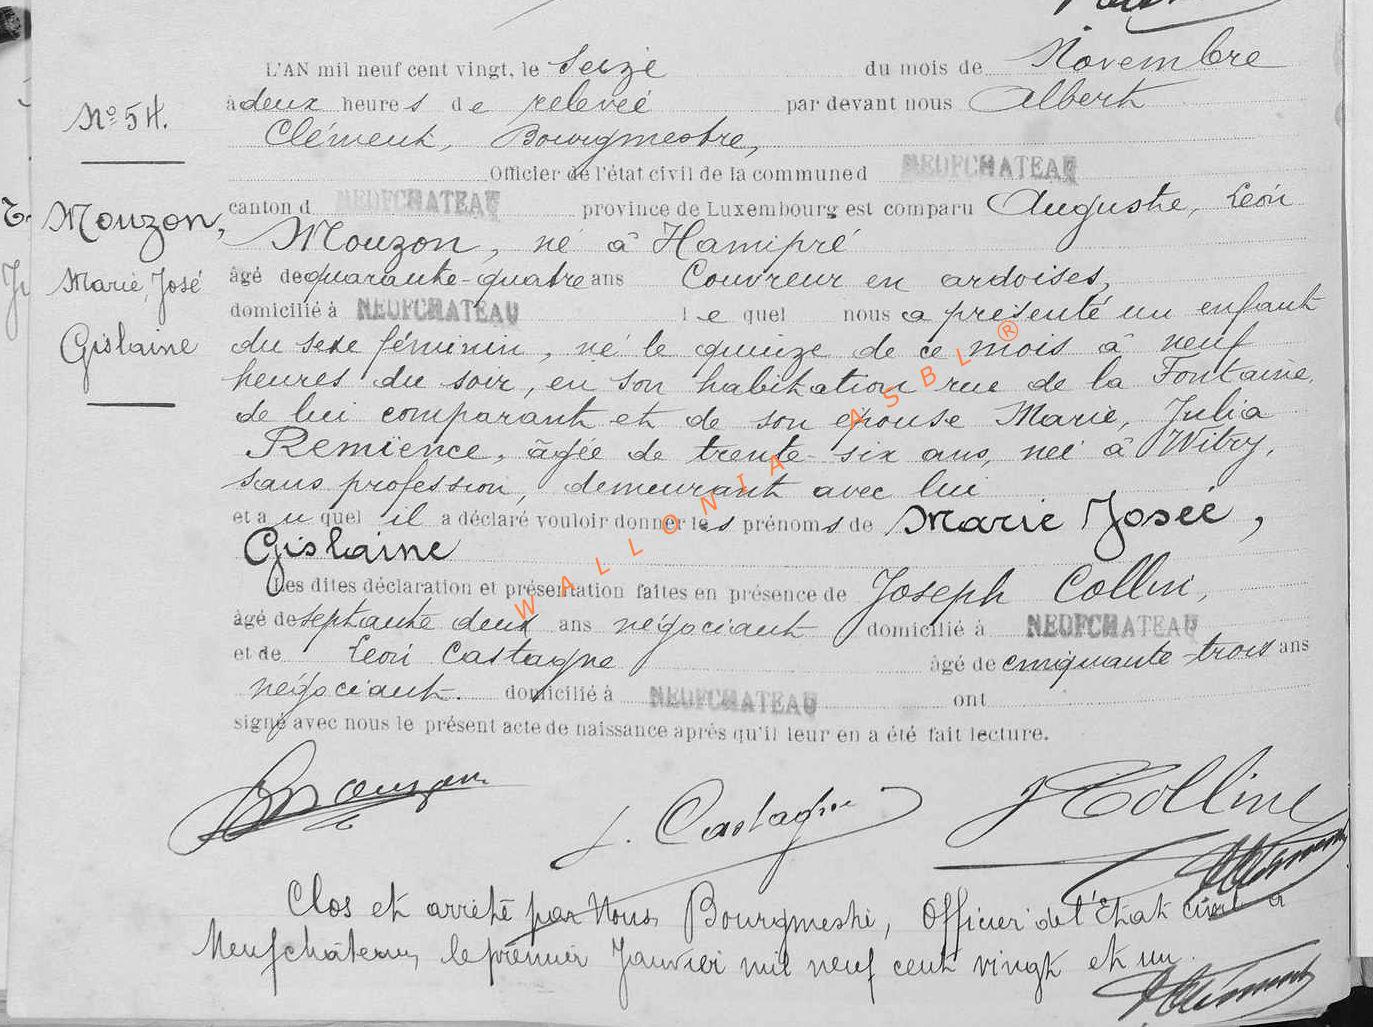 L'AN mil neuf cent vingt, le Seize du mois de Novembre
N° 54.
à deux heures de relevée par devant nous Albert
Clément, Bourgmestre,
Officier de l'état civil de la commune d NEUFCHATEAU
canton d NEUFCHATEAU province de Luxembourg est comparu Auguste, Léon
Mouzon,
Mouzon, né à Hamipré
Marie, José
âgé de quarante-quatre ans Couvreur en ardoises,
domicilié à NEUFCHATEAU le quel nous a présenté un enfant
Gislaine
du sexe féminin, né le quinze de ce mois à neuf
heures du soir, en son habitation rue de la Fontaine,
de lui comparant et de son épouse Marie, Julia
Remience, âgée de trente-six ans, née à Witry,
sans profession, demeurant avec lui
et auquel il a déclaré vouloir donner les prénoms de Marie José,
Gislaine
Les dites déclaration et présentation faites en présence de Joseph Collin,
âgé de septante deux ans négociant domicilié à NEUFCHATEAU
et de Léon Castagne âgé de cinquante-trois ans
négociant. domicilié à NEUFCHATEAU ont
signé avec nous le présent acte de naissance après qu'il leur en a été fait lecture.
Mouzon
L. Castagne
J Colline
Clos et arrêté par Nous Bourgmestre, Officier de l'Etat civil à
Neufchâteau, le premier Janvier mil neuf cent vingt et un.
WALLONIA ASBL ®